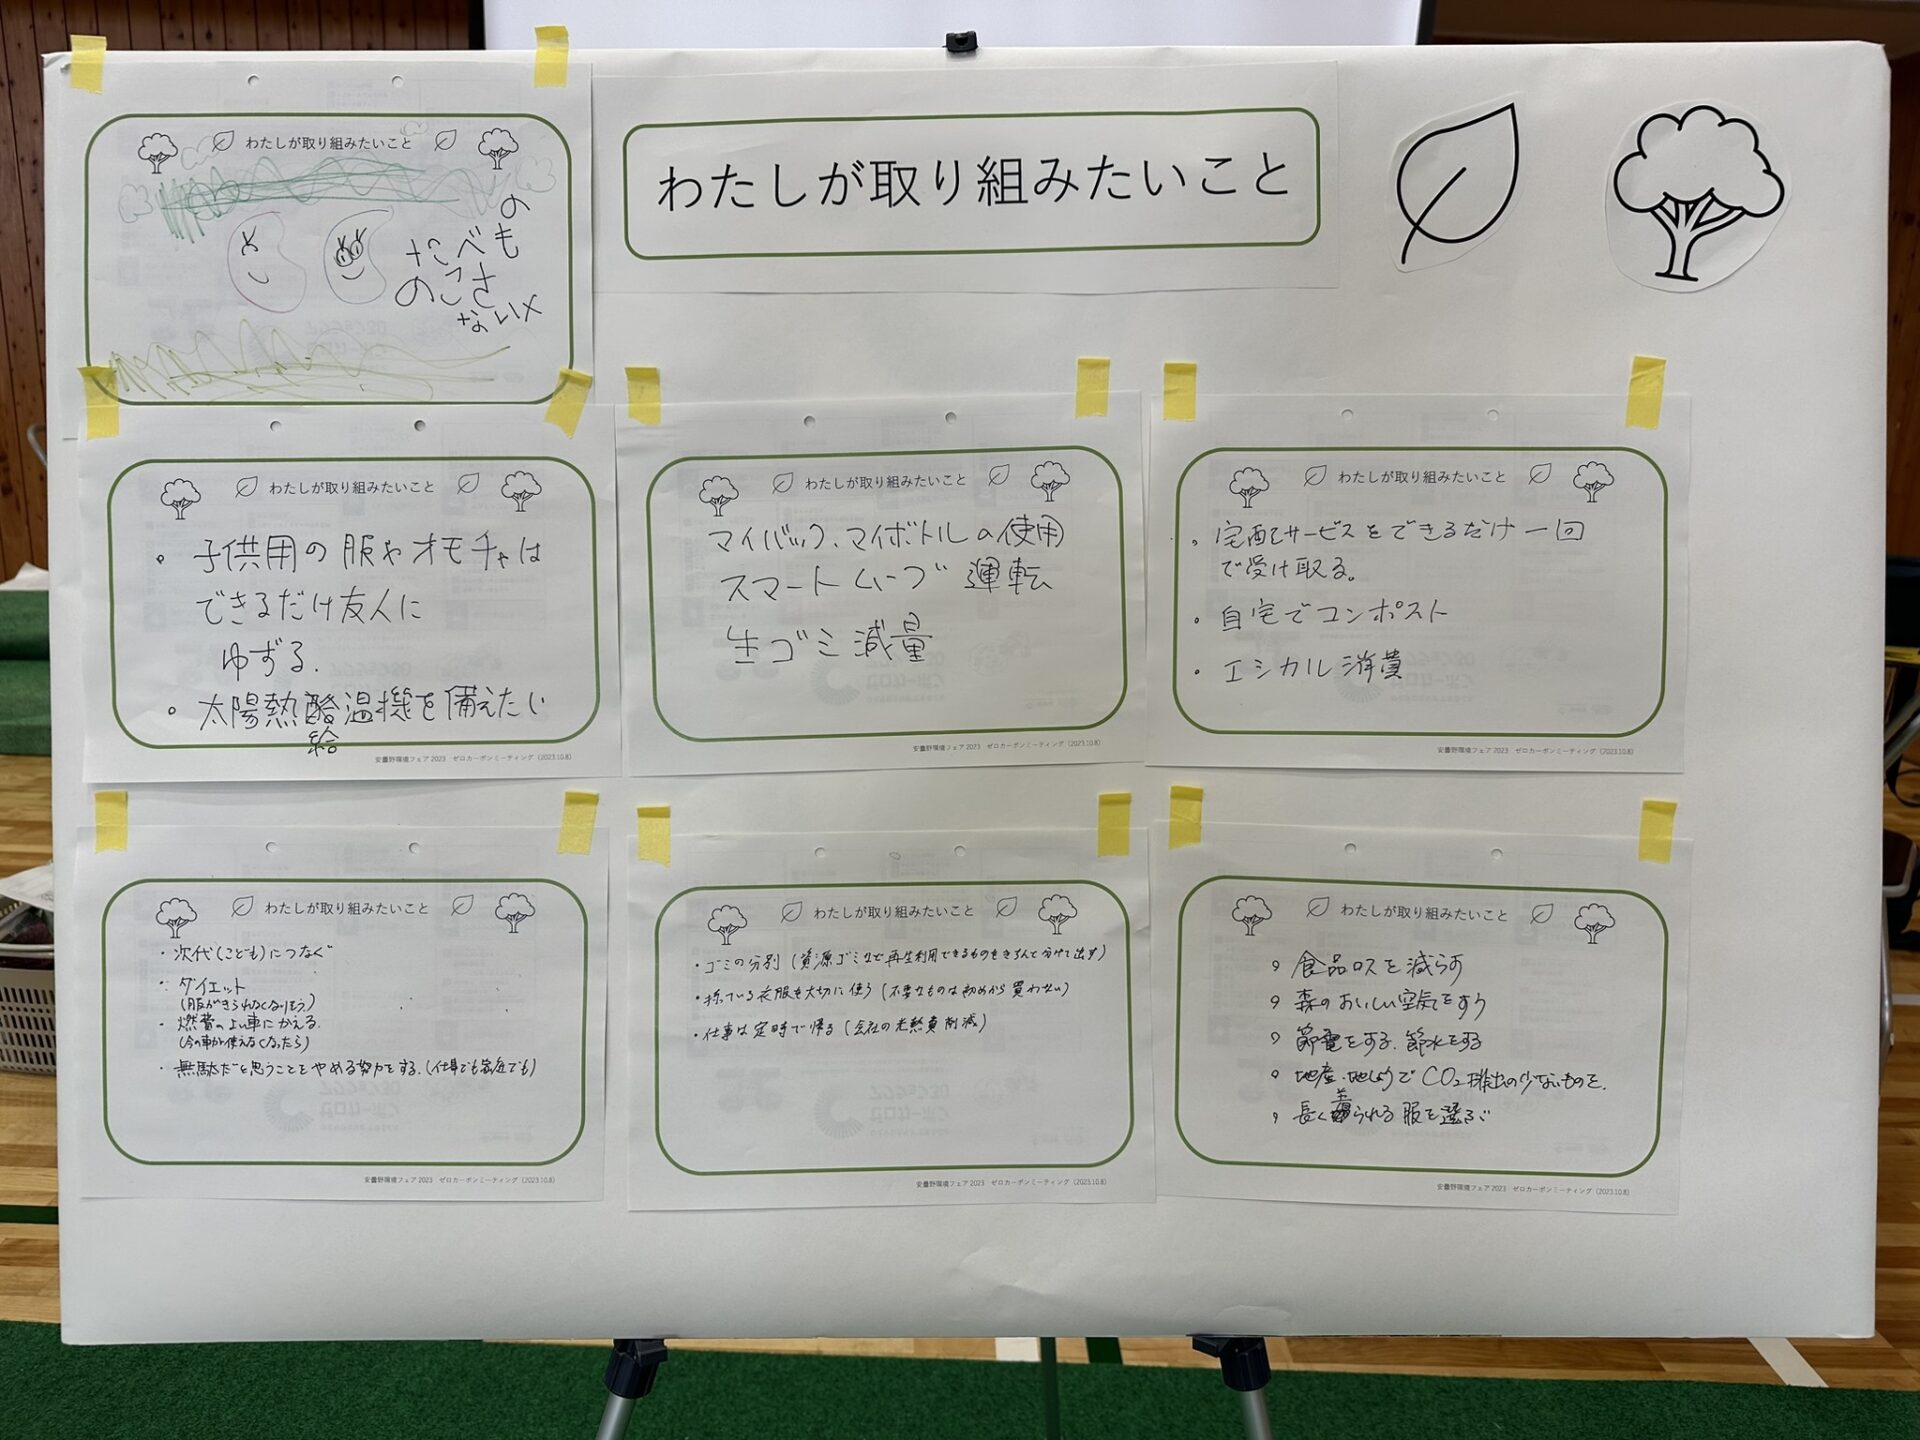 わたしが取り組みたいこと
わたしが取り組みたいこと
たべもの
のこさ
ない
わたしが取り組みたいこと
・子供用の服やオモチャは
できるだけ友人に
ゆずる.
・太陽熱温機を備えたい
給
安曇野環境フェア2023 ゼロカーボンミーティング (2023.10.8)
わたしが取り組みたいこと
マイバック、マイボトルの使用
スマートムーブ 運転
生ゴミ減量
安曇野環境フェア2023 ゼロカーボンミーティング (2023.10.8)
わたしが取り組みたいこと
・宅配サービスをできるだけ一回
で受け取る。
・自宅でコンポスト
・エシカル消費
安曇野環境フェア2023 ゼロカーボンミーティング (2023.10.8)
わたしが取り組みたいこと
・次代(こども)につなぐ
・ダイエット
(服がきられなくなりそう)
・燃費のよい車にかえる.
(今の車が使えなくなったら)
・無駄だと思うことをやめる努力をする.(仕事でも家庭でも)
安曇野環境フェア2023 ゼロカーボンミーティング (2023.10.8)
わたしが取り組みたいこと
・ゴミの分別 (資源ゴミなど再生利用できるものをきちんと分けて出す)
・持っている衣服を大切に使う (不要なものは初めから買わない)
・仕事は定時で帰る (会社の光熱費削減)
安曇野環境フェア2023 ゼロカーボンミーティング (2023.10.8)
わたしが取り組みたいこと
食品ロスを減らす
森のおいしい空気をすう
節電をする. 節水をする
地産・地しょうでCO2排出の少ないものを.
長く着られる服を選ぶ
安曇野環境フェア2023 ゼロカーボンミーティング (2023.10.8)